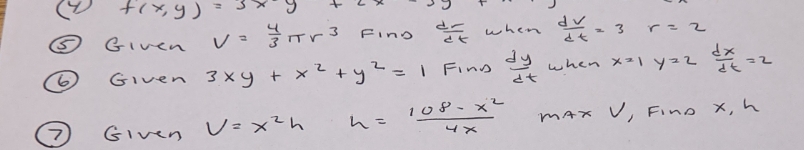 (4) f(x,y) = 3x y + 2x - 3y +
(5) Given V = 4/3 πr³ Find dr/dt when dv/dt = 3 r = 2
(6) Given 3xy + x² + y² = 1 Find dy/dt when x=1 y=2 dx/dt = 2
(7) Given V = x²h h = (108 - x²)/4x max V, Find x, h